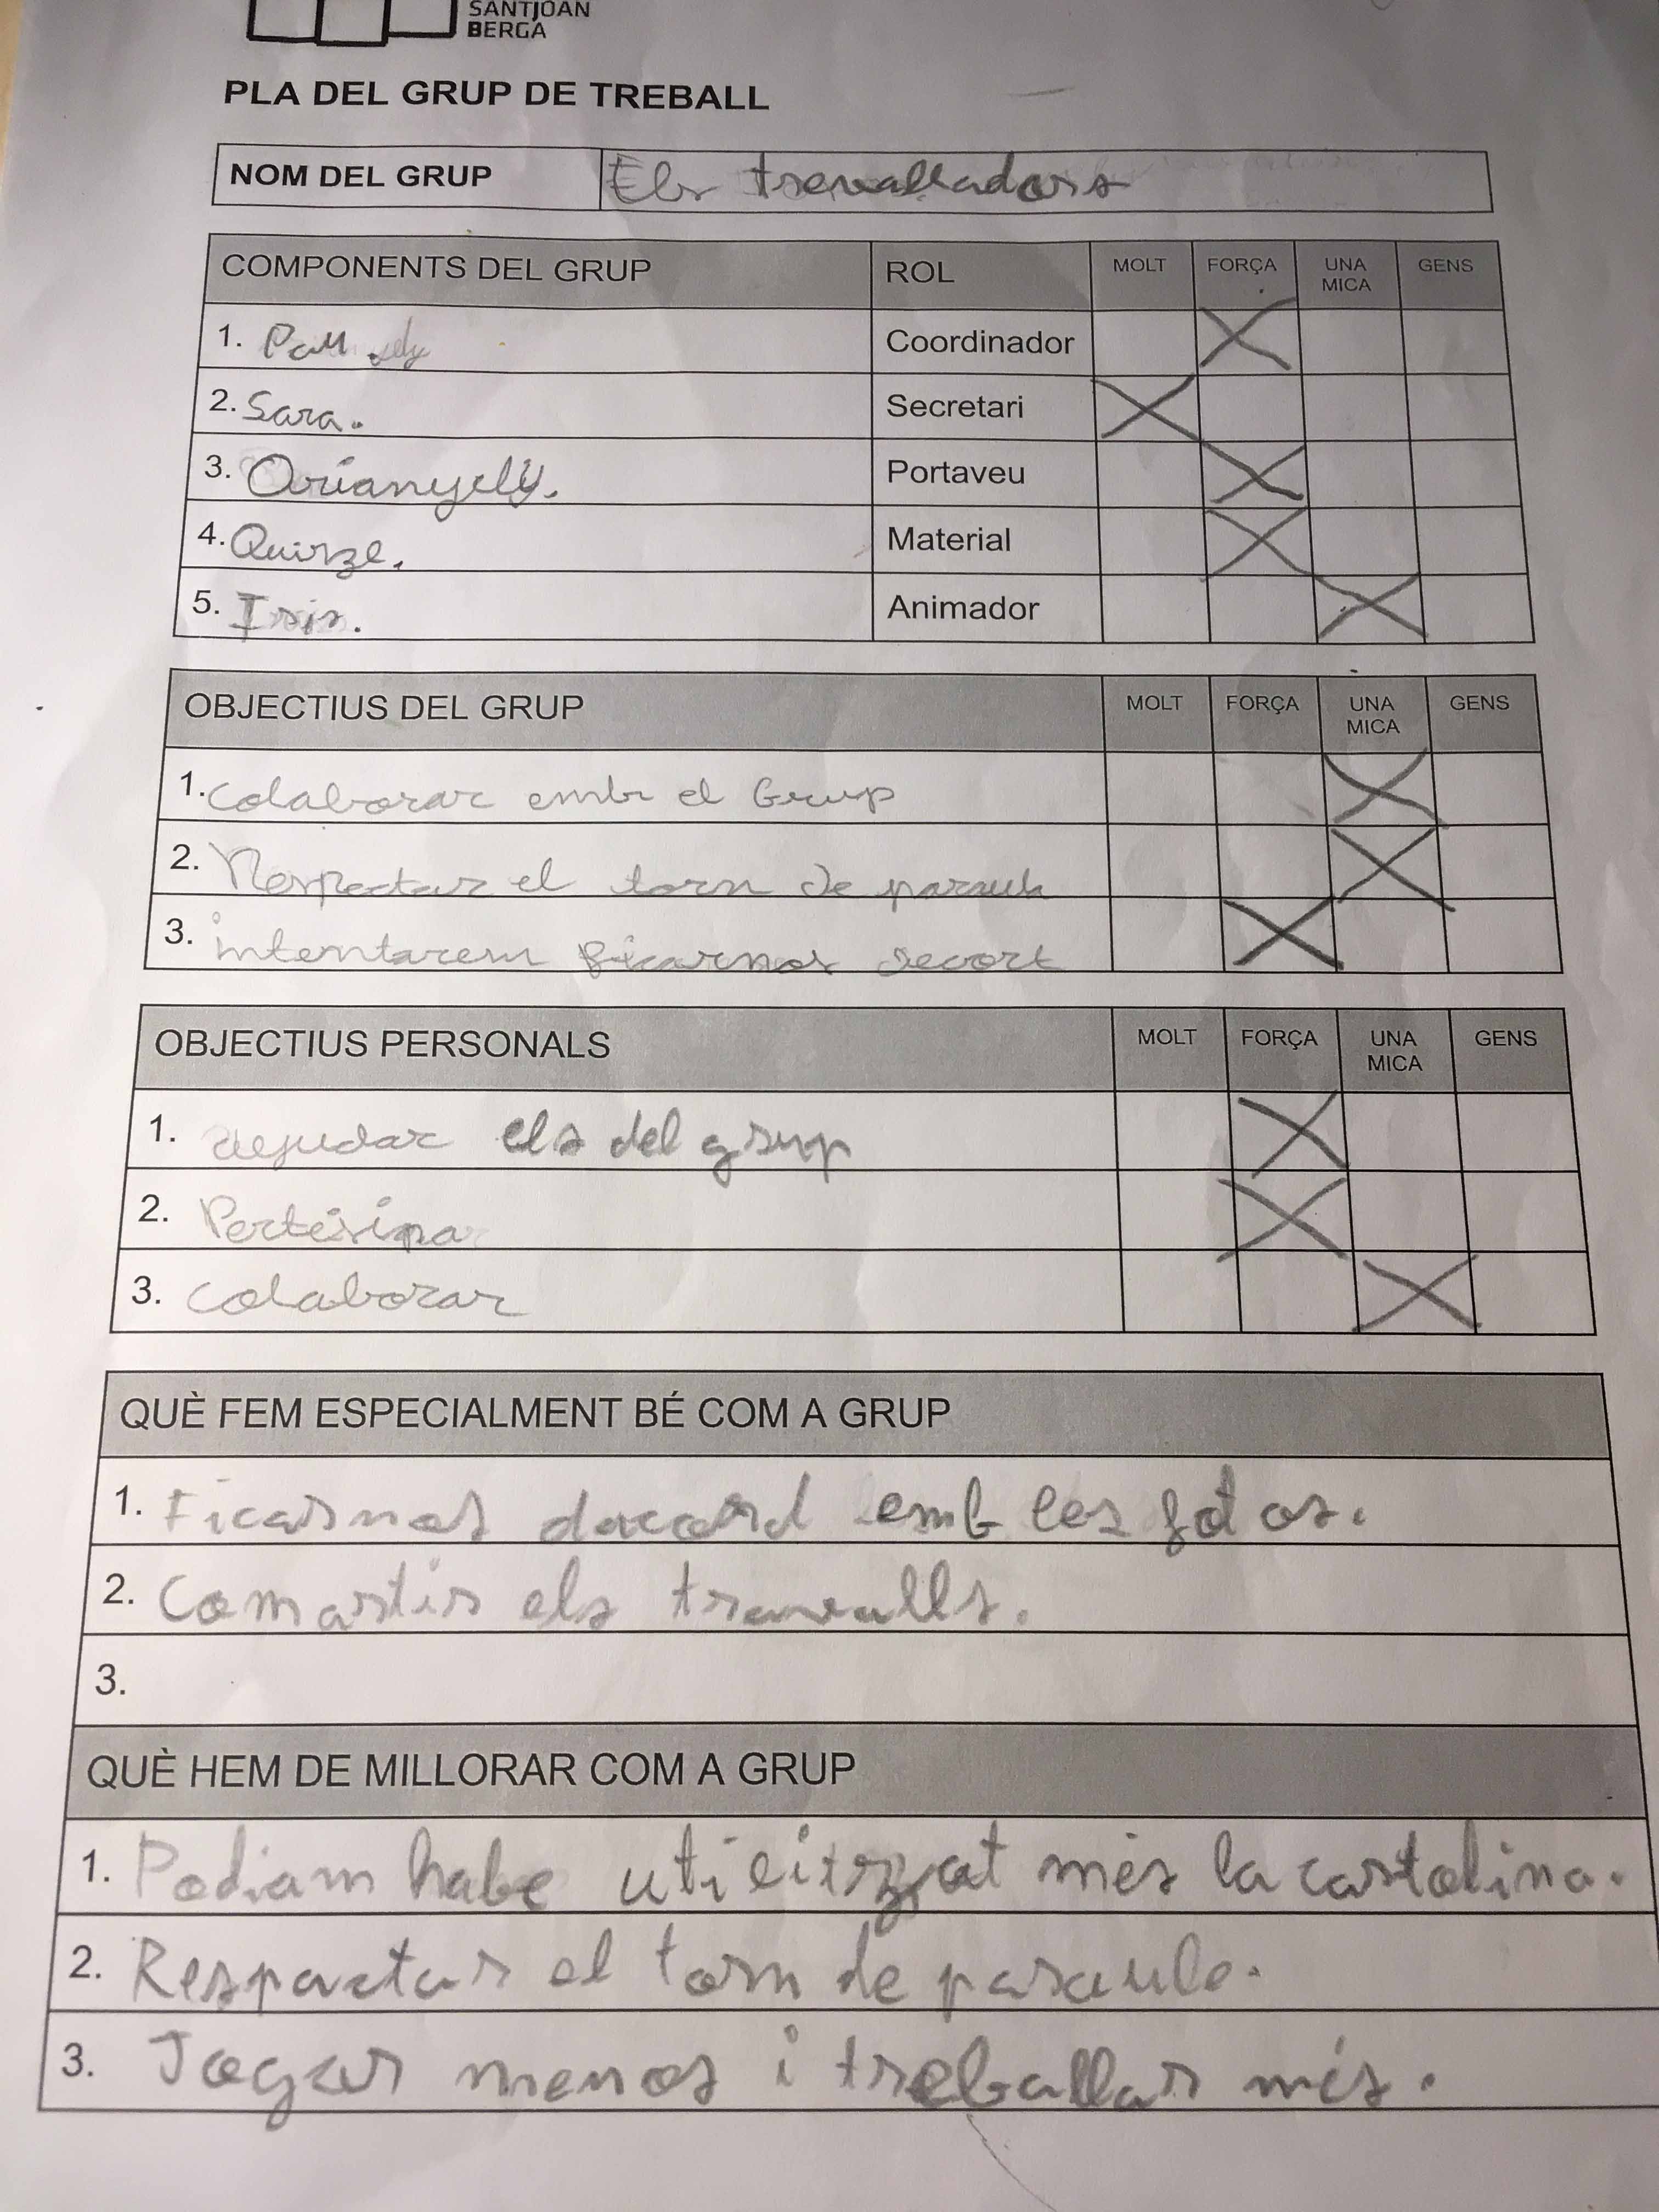 SANTJOAN
BERGA
PLA DEL GRUP DE TREBALL
NOM DEL GRUP Els trevalladors
COMPONENTS DEL GRUP ROL MOLT FORÇA UNA MICA GENS
1. Pau. Coordinador X
2. Sara. Secretari X
3. Orianyely. Portaveu X
4. Quirze. Material X
5. Iris. Animador X
OBJECTIUS DEL GRUP MOLT FORÇA UNA MICA GENS
1. Colaborar emb el Grup X
2. Respectar el torn de paraula X
3. intentarem ficarnos decort X
OBJECTIUS PERSONALS MOLT FORÇA UNA MICA GENS
1. aejudar els del grup X
2. Pertisipa X
3. colaborar X
QUÈ FEM ESPECIALMENT BÉ COM A GRUP
1. Ficarnos dacord emb les fotos.
2. Comartir els travalls.
3.
QUÈ HEM DE MILLORAR COM A GRUP
1. Podiam habe utilitzat més la cartolina.
2. Respactar el torn de paraule.
3. Jogar menos i treballar més.